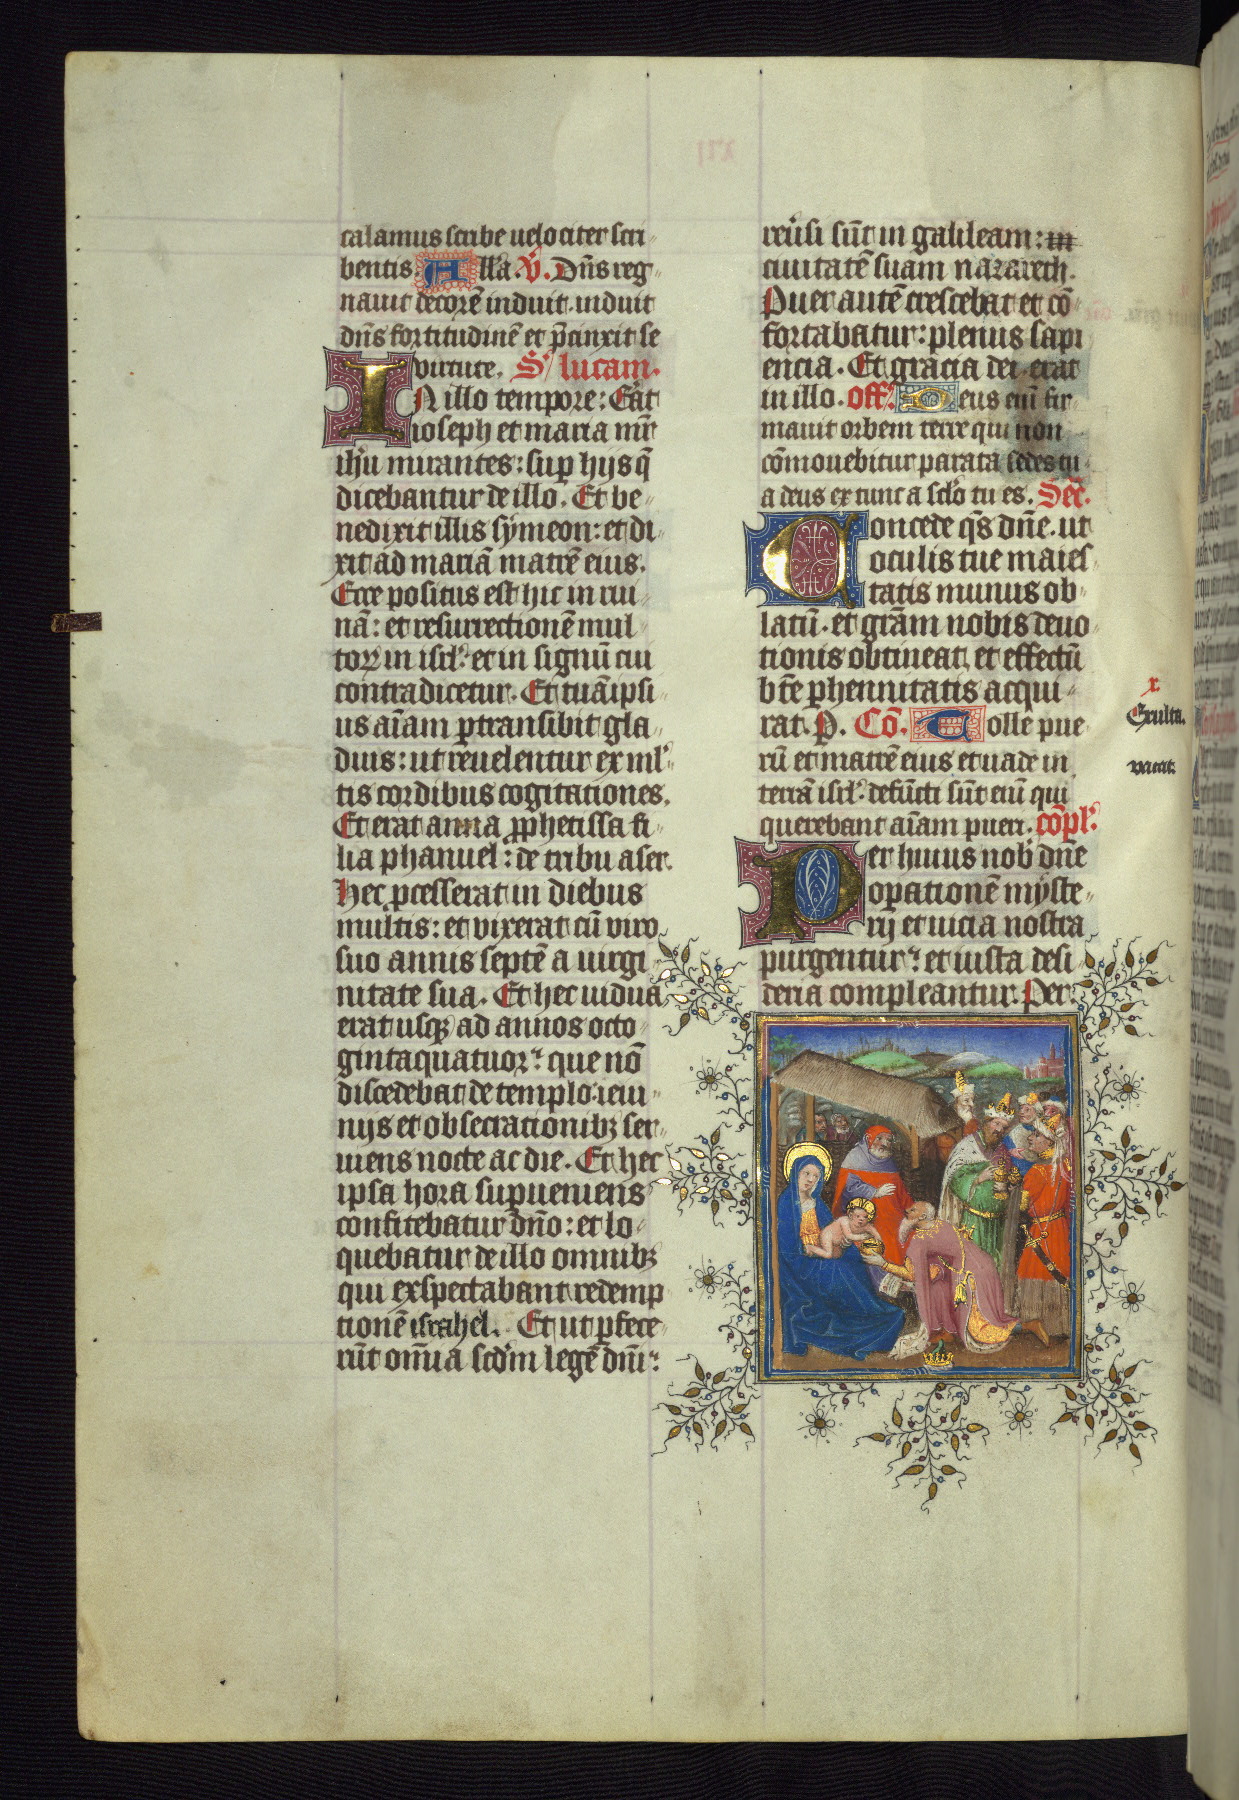 calamus scribe velociter scri
bentis. Alla. V. Dns reg
navit decore induit. induit
dns fortitudine et pcinxit se
virtute. S. lucam.
IN illo tempore: Erat
ioseph et maria mr
ihu mirantes: sup hijs q
dicebantur de illo. Et be
nedixit illis symeon: et di
xit ad maria matre eius.
Ecce positus est hic in rui
na: et resurrectione mul
tor in isrl: et in signu cui
contradicetur. Et tua ipsi
us aiam ptransibit gla
dius: ut revelentur ex ml
tis cordibus cogitationes.
Et erat anna pphetissa fi
lia phanuel: de tribu aser.
Hec pcesserat in diebus
multis: et vixerat cu viro
suo annis septe a virgi
nitate sua. Et hec vidua
erat usq ad annos octo
gintaquatuor: que no
discedebat de templo. ieiu
nijs et obsecrationib ser
viens nocte ac die. Et hec
ipsa hora supveniens
confitebatur dno: et lo
quebatur de illo omnib
qui exspectabant redemp
tione israhel. Et ut pfece
rut omia scdm lege dni:
reusi sut in galileam: in
civitate suam nazareth.
Puer aute crescebat et co
fortabatur: plenus sapi
encia. Et gracia dei. erat
in illo. Off. Deus eni fir
mavit orbem terre qui non
comovebitur parata sedes tu
a deus ex tunc a sclo tu es. Sec.
Concede qs dne. ut
oculis tue maies
tatis munus ob
latu. et gram nobis devo
tionis obtineat. et effectu
bte phennitatis acqui
rat. P. Co. Tolle pue
ru et matre eius et vade in
terra isrl. defucti sut eni qui
querebant aiam pueri. compl.
Per huius nob dne
opatione myste
rij et vicia nostra
purgentur: et iusta desi
deria compleantur. Per.
x.
Exulta.
vacat